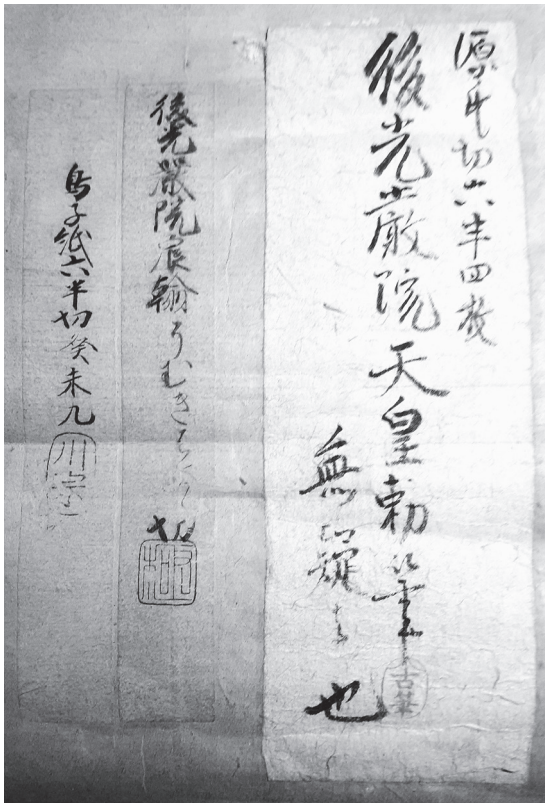 源氏切六半四枚
後光嚴院天皇勅筆
無疑者也
後光嚴院宸翰うむき 切
極
鳥子紙六半切癸未九